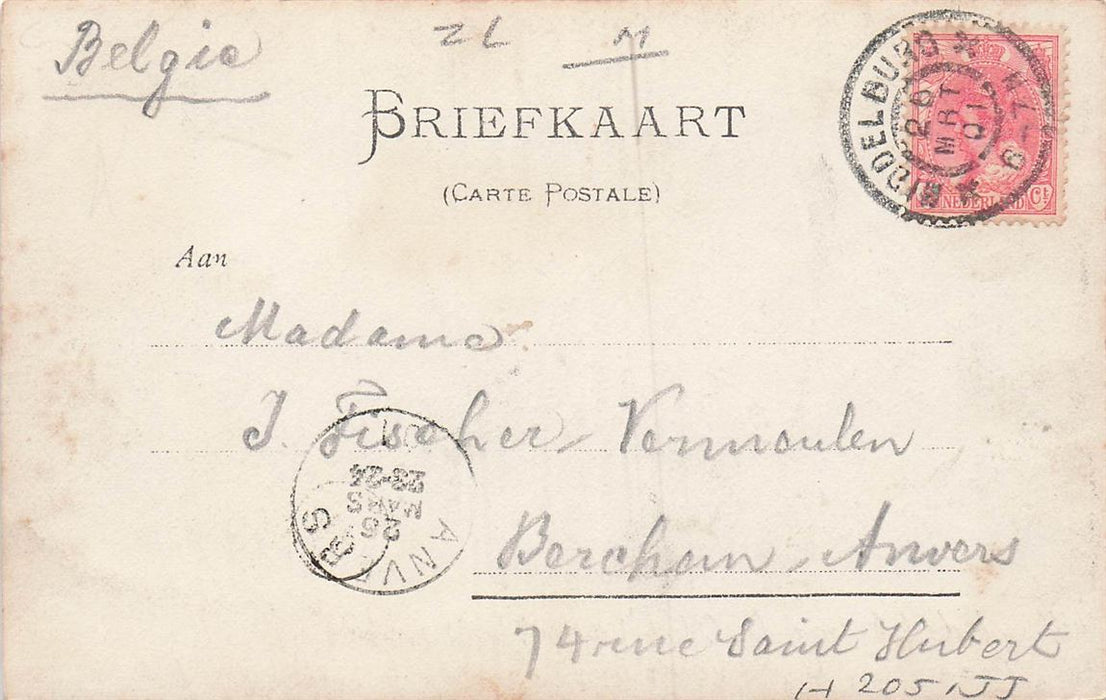 Belgie
ZL M
BRIEFKAART
(CARTE POSTALE)
MIDDELBURG
26
MRT
01
6-7N
NEDERLAND
Ct
Aan
Madame
J. Fischer-Vermeulen
ANVERS
26
MARS
23-24
01
Berchem-Anvers
74 rue Saint Hubert
H 205